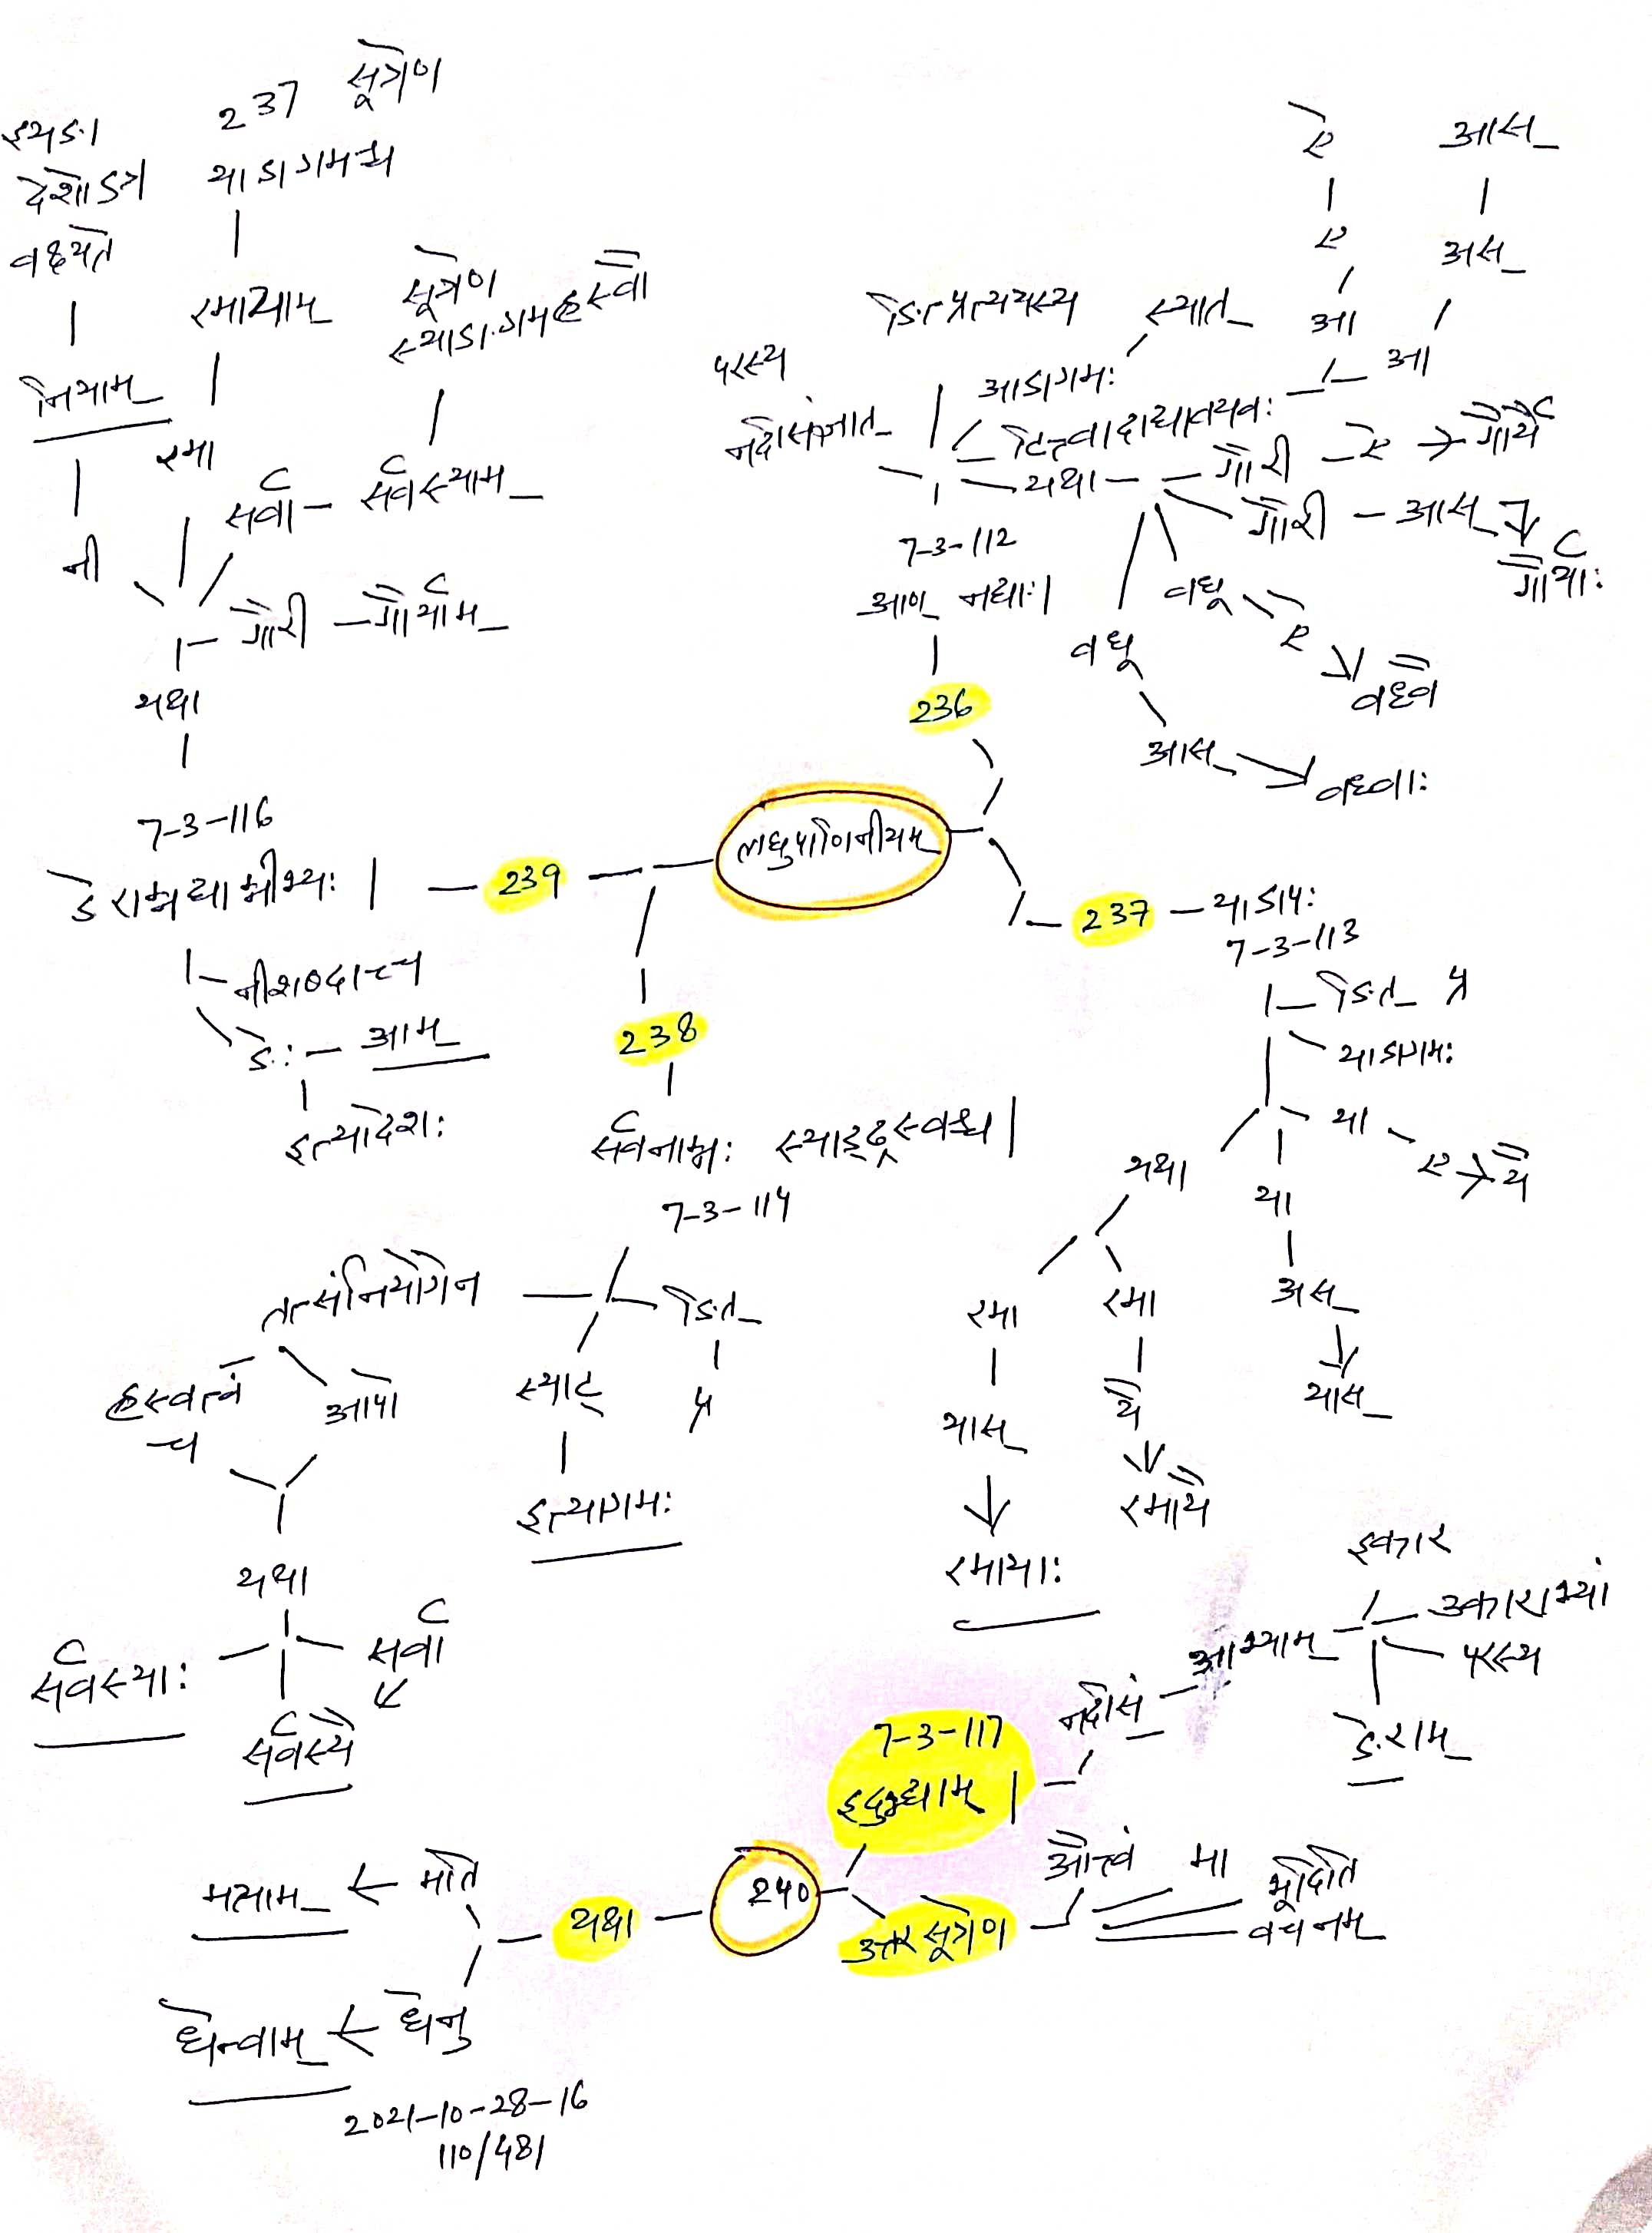 237 सूत्रेण
याडागमश्च
रमायाम्
रमा
इयङा
देशोऽग्रे
वक्ष्यते
नियाम्
नी
सूत्रेण
स्याडागमह्रस्वौ
सर्वा – सर्वस्याम्
गौरी – गौर्याम्
यथा
7-3-116
ङेराम्नद्याम्नीभ्यः | – 239
नीशब्दाच्च
ङेः – आम्
इत्यादेशः
लघुपाणिनीयम्
236
आण् नद्याः|
7-3-112
नदीसंज्ञात्
परस्य
ङित्प्रत्ययस्य
आडागमः
स्यात्
टित्त्वादाद्यावयवः
ऐ
ए
आ
आस्
अस्
आ
यथा – गौरी – ऐ → गौर्यै
गौरी – आस् → गौर्याः
वधू – ऐ → वध्वै
वधू
आस् → वध्वाः
237 – याडापः
7-3-113
ङित् प्र
याडागमः
या – ए → यै
या
अस्
यास्
यथा
रमा
यास्
रमायाः
रमा
यै
रमायै
238
सर्वनाम्नः स्याड्ढ्रस्वश्च |
7-3-114
ङित्
प्र
स्याट्
इत्यागमः
तत्संनियोगेन
ह्रस्वत्वं
च
आपो
यथा
सर्वा
सर्वस्याः
सर्वस्यै
240
7-3-117
इदुद्भ्याम् |
नदीसं
आभ्याम्
इकार
उकाराभ्यां
परस्य
ङेराम्
उत्तर सूत्रेण
औत्त्वं मा
भूदिति
वचनम्
यथा
मति → मत्याम्
धेनु → धेन्वाम्
2021-10-28-16
110/481